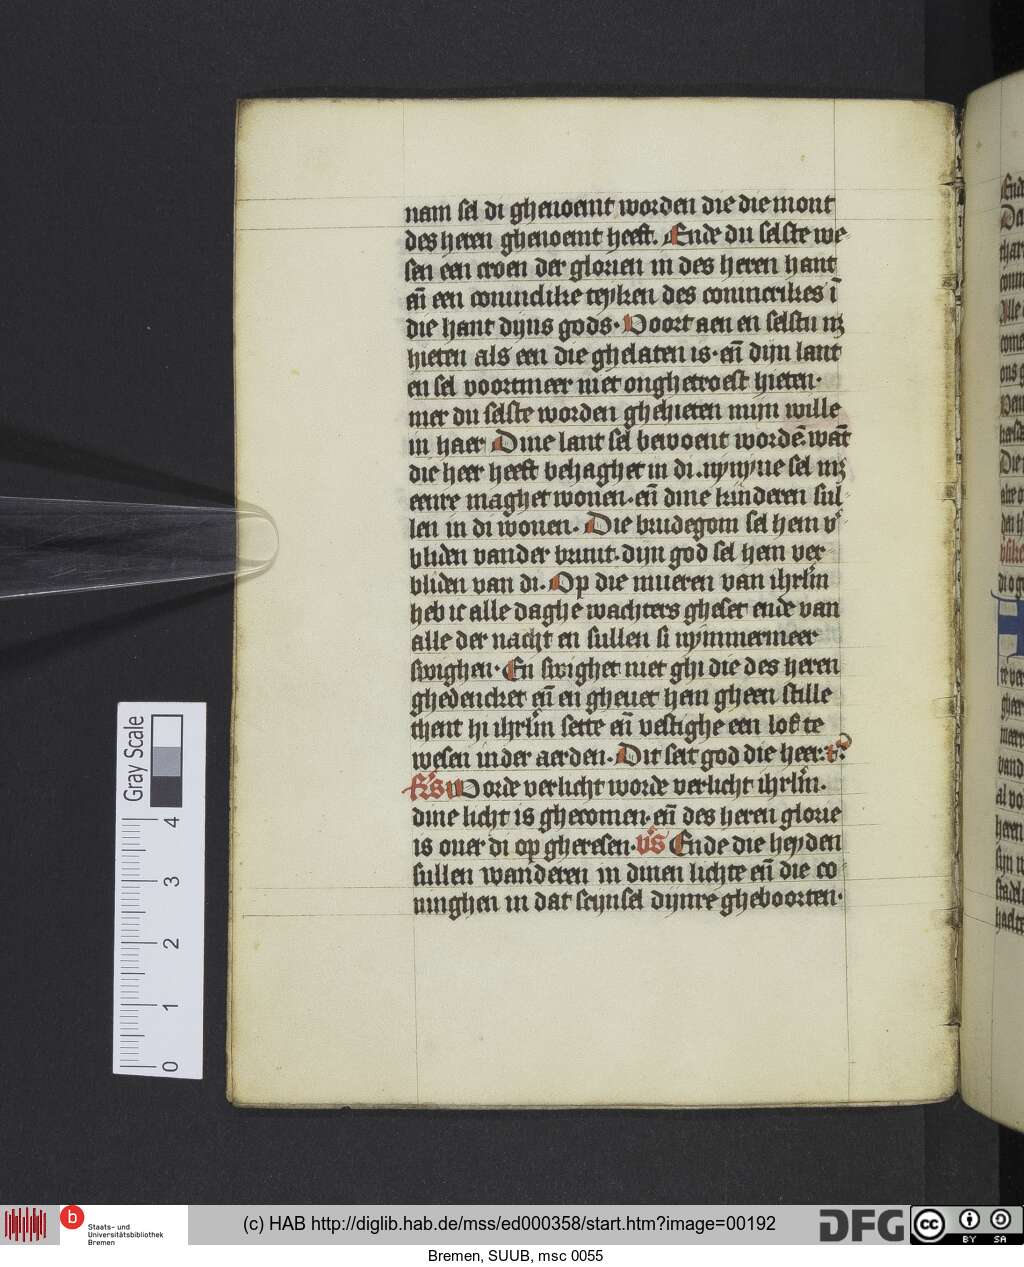 nam sel di ghenoemt worden die die mont
des heren ghenoemt heeft. Ende du selste we-
sen een croen der glorien in des heren hant
eñ een conincklike teyken des coninckrikes ī
die hant dijns gods. Voort aen en selstu nz
hieten als een die ghelaten is. eñ dijn lant
en sel voortmeer niet onghetroest hieten.
mer du selste worden ghehieten mijn wille
in haer Dine lant sel bewoent wordē. wāt
die heer heeft behaghet in di.
eenre maghet wonen. eñ dine kinderen sul-
len in di wonen. Die brudegom sel hem v-
bliden vander bruut. dijn god sel hem ver
bliden van di. Op die mueren van ihrlm
heb ic alle daghe wachters gheset ende van
alle der nacht en sullen si nymmermeer
swighen. En swighet niet ghi die des heren
ghedencket eñ en gheuet hem gheen stille
thent hi ihrlm sette eñ vestighe een lof te
wesen inder aerden. Dit seit god die heer.
Rs Worde verlicht worde verlicht ihrlm.
dine licht is ghecomen. eñ des heren glorie
is ouer di op gheresen. vs Ende die heyden
sullen wanderen in dinen lichte eñ die co-
ninghen in dat scijnsel dijnre gheboorten.
Gray Scale
4
3
2
1
0
b
Staats- und
Universitätsbibliothek
Bremen
(c) HAB http://diglib.hab.de/mss/ed000358/start.htm?image=00192
DFG
cc
BY SA
Bremen, SUUB, msc 0055